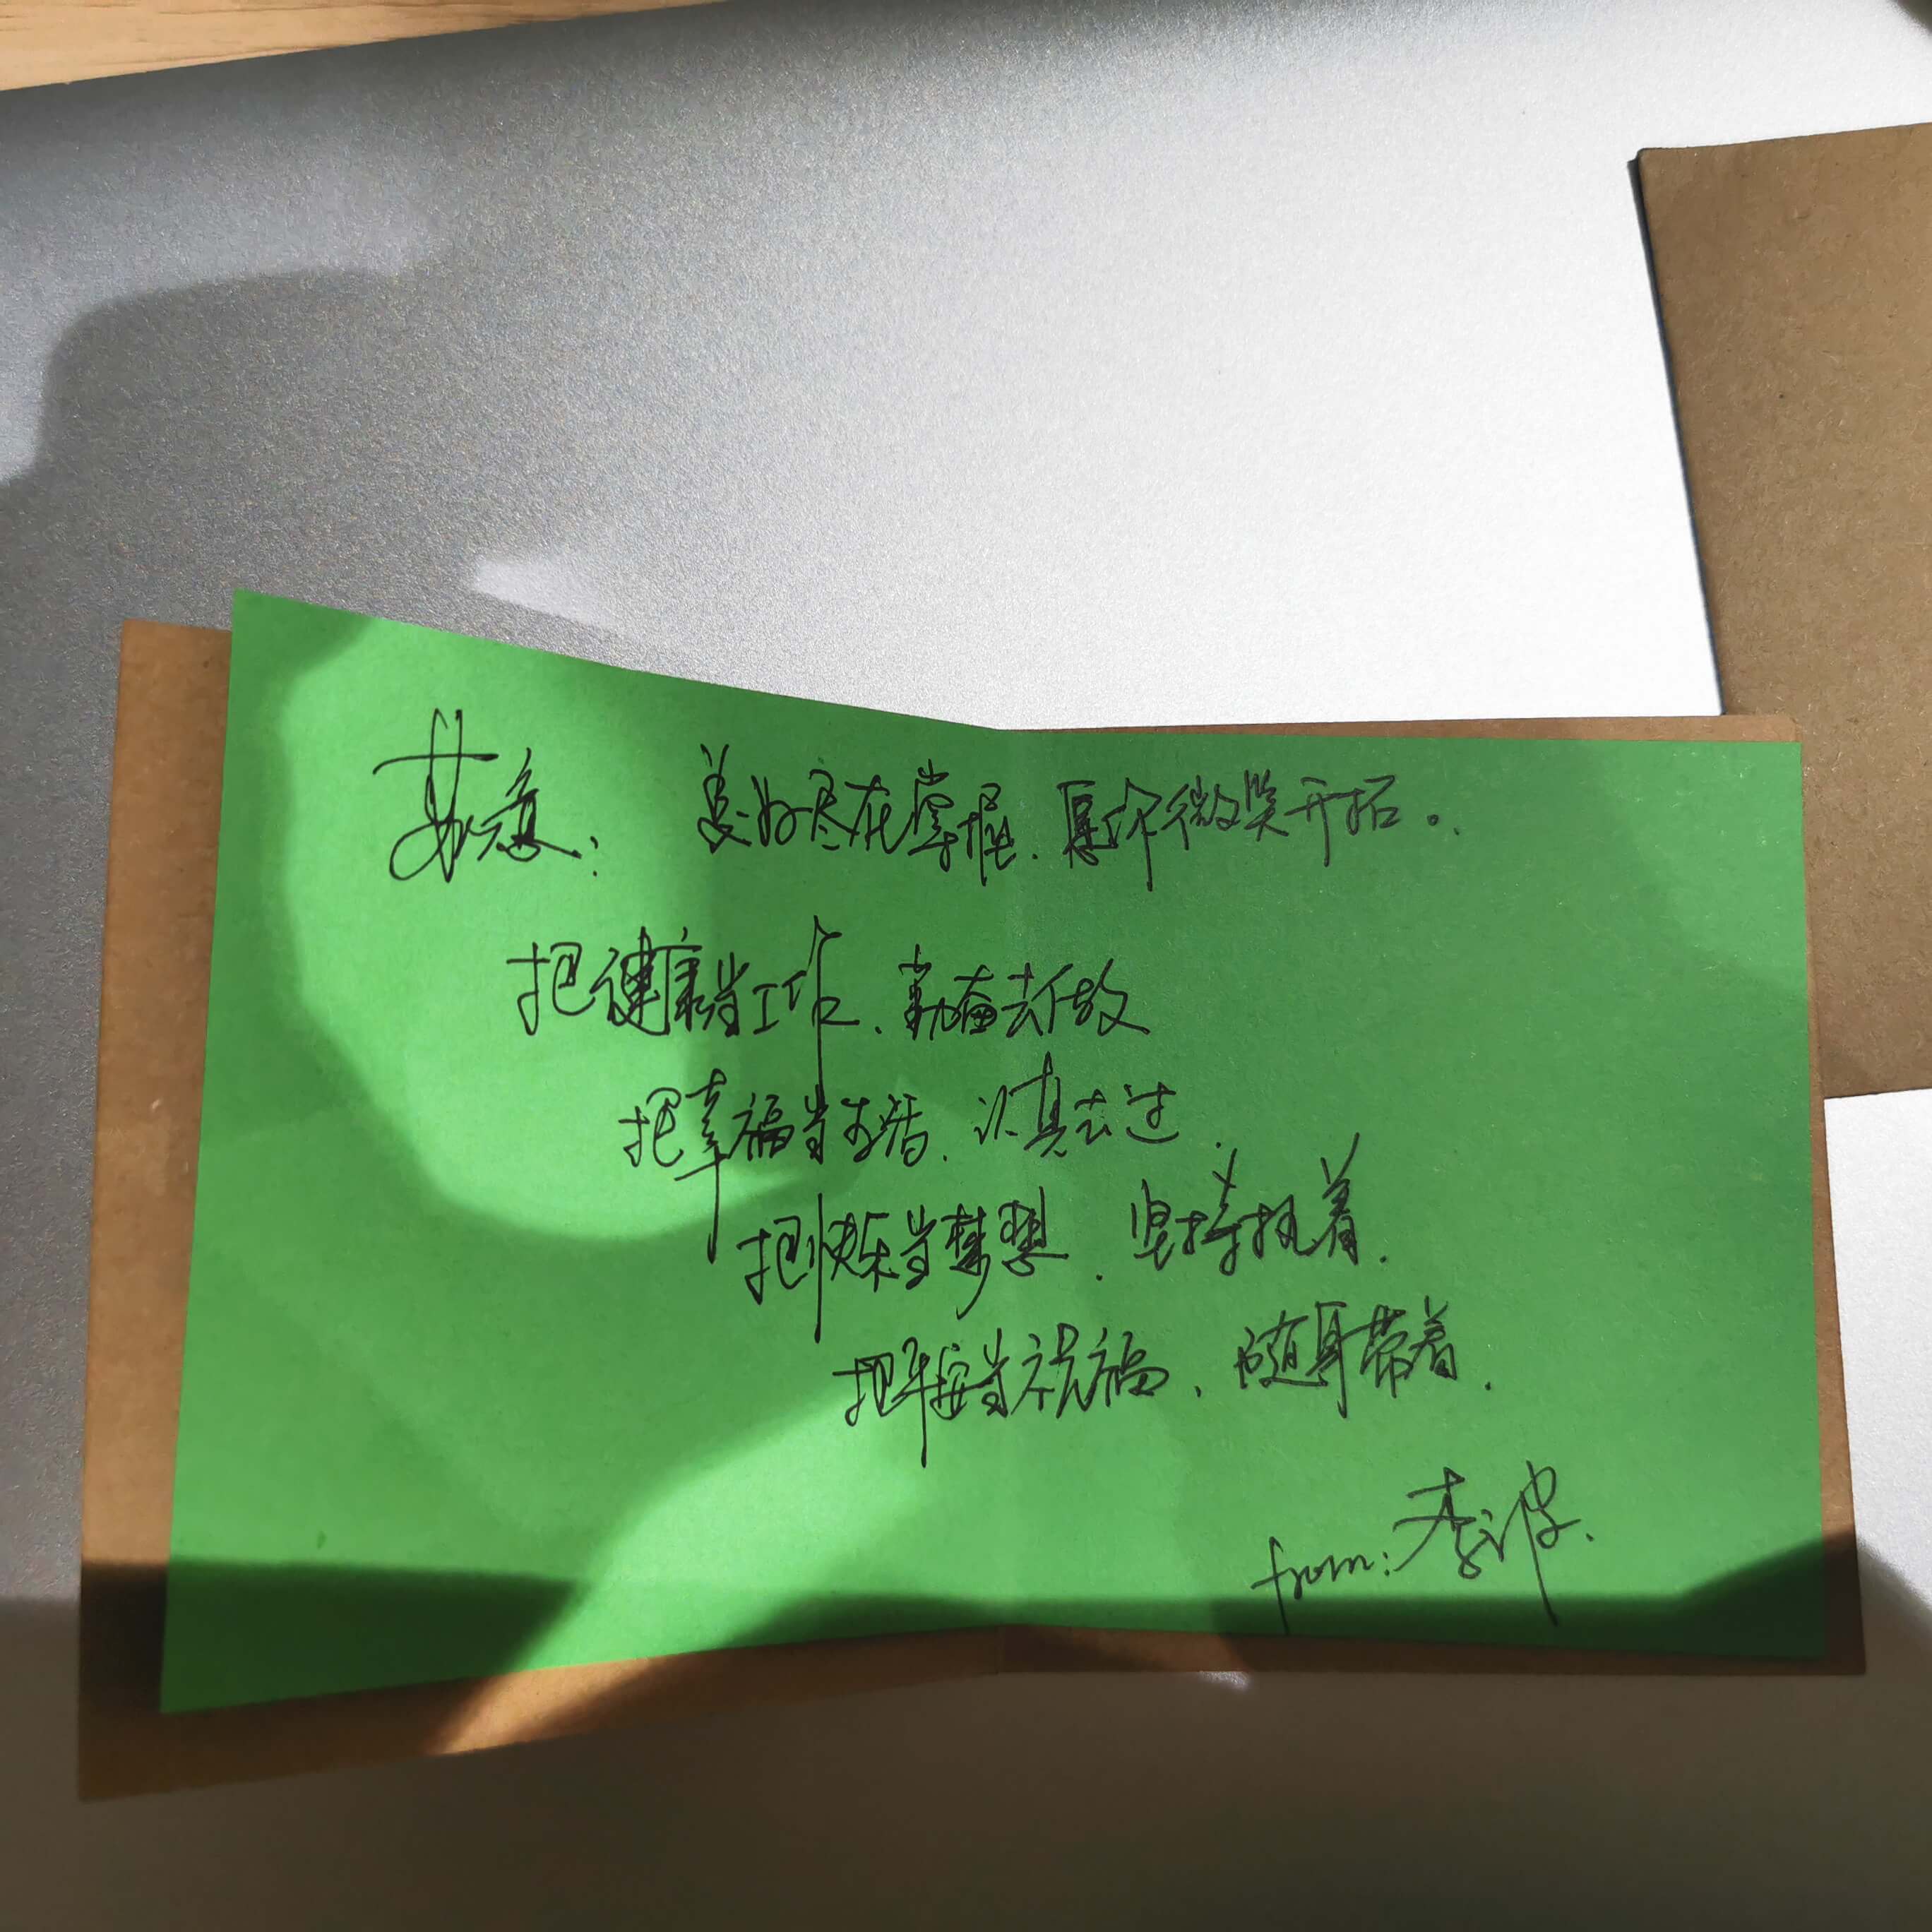 苏: 美好尽在掌握、愿你微笑开拓。
把健康当工作、勤奋去做
把幸福当生活、认真去过.
把快乐当梦想、坚持执着.
把平安当祝福、随身带着.
from: 李波.